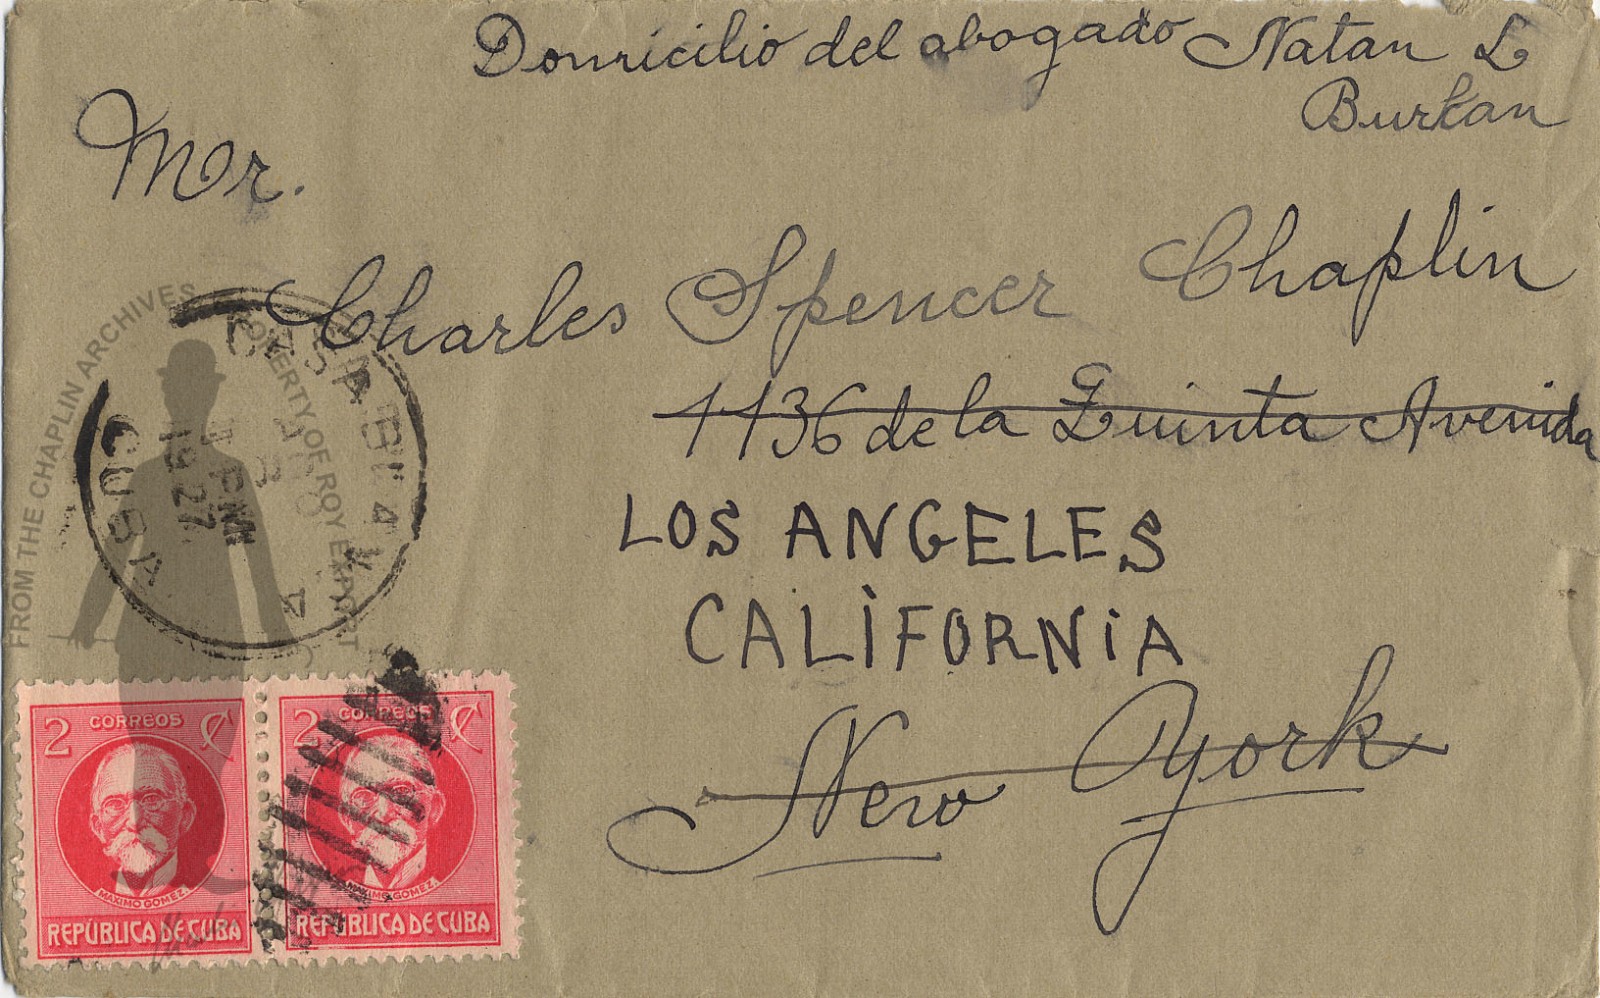 Domicilio del abogado Natan L
Burkan
Mr.
Charles Spencer Chaplin
1136 de la Quinta Avenida
LOS ANGELES
CALIFORNIA
New York
FROM THE CHAPLIN ARCHIVES
PROPERTY OF ROY EXPORT
CUBA
PM
1927
2 CORREOS ₡
MAXIMO GOMEZ.
REPÚBLICA DE CUBA
2 CORREOS ₡
MAXIMO GOMEZ.
REPÚBLICA DE CUBA